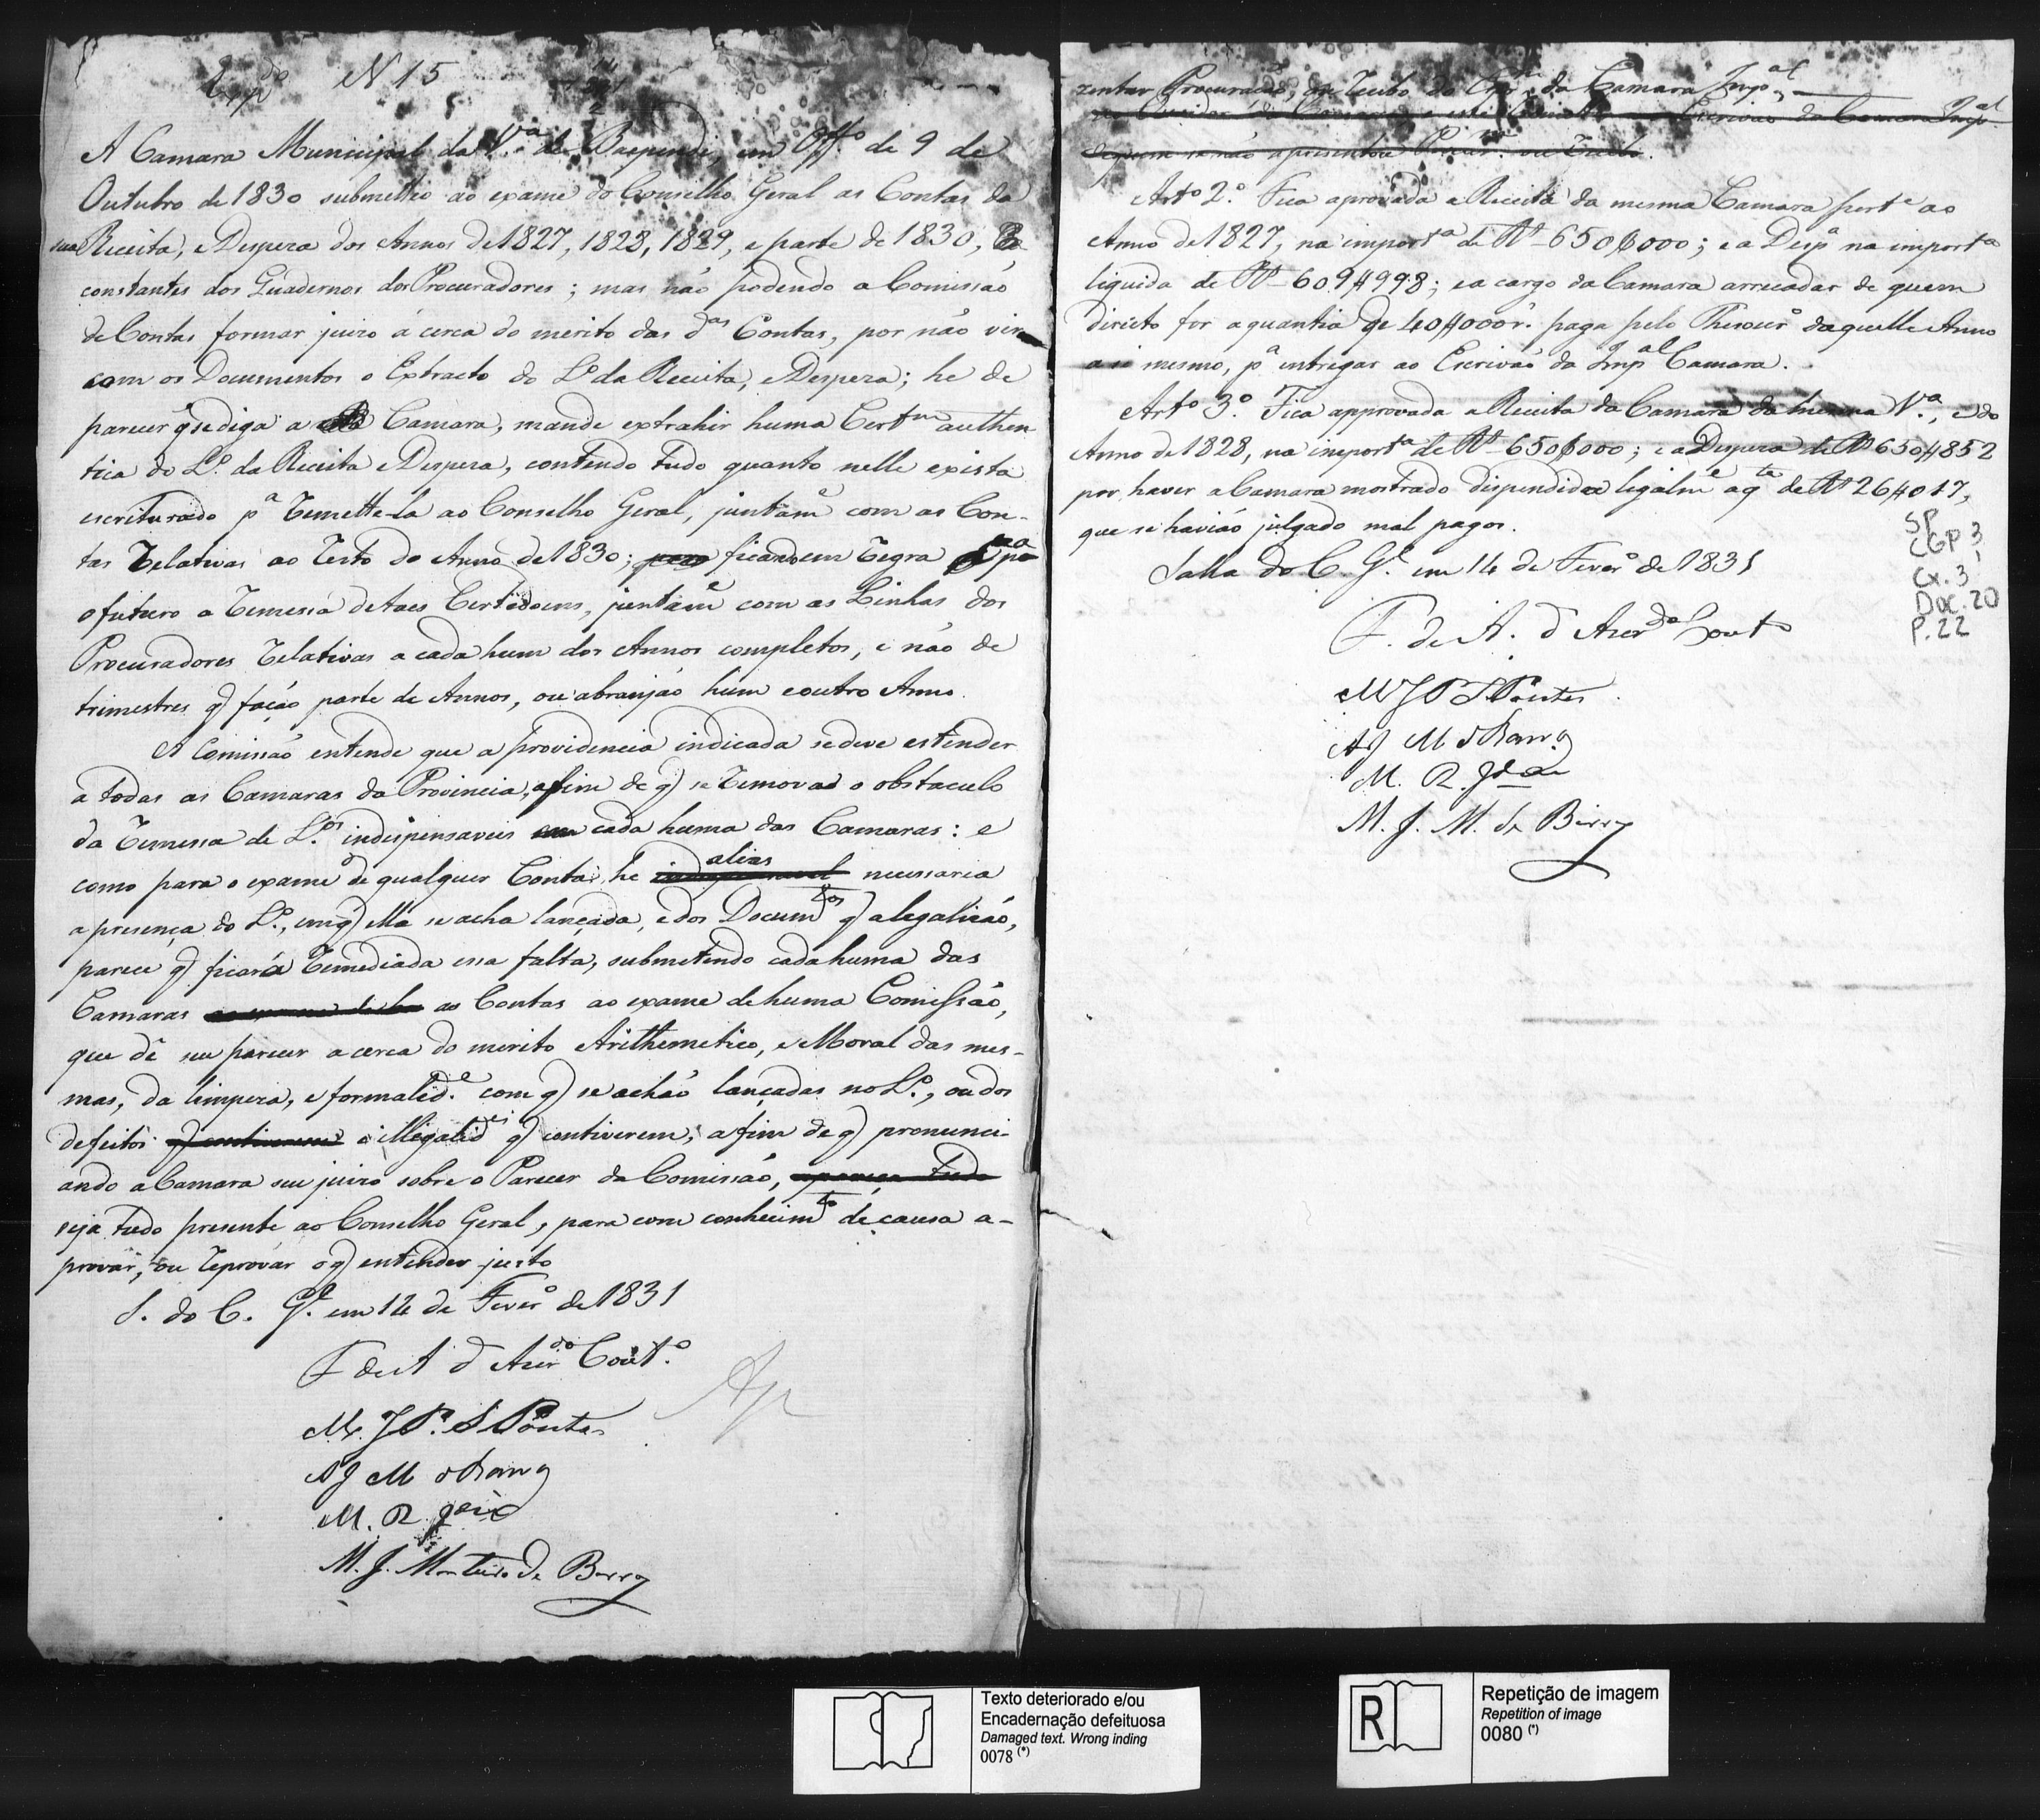 Exp.do N 15
A Camara Municipal da V.a de Baependi, em Off.o de 9 de
Outubro de 1830 submetteo ao exame do Conselho Geral as Contas da
sua Receita, e Despeza dos Annos de 1827, 1828, 1829, e parte de 1830,
constantes dos Quadernos dos Procuradores; mas não podendo a Comissão
de Contas formar juizo á cerca do merito das d.as Contas, por não vir
com os Documentos o Extracto do L.o da Receita, e Despeza; he de
parecer q' se diga a Camara, mande extrahir huma Cert.m authen
tica do L.o da Receita e Despeza, contendo tudo quanto nelle exista
escriturado p.a remette-la ao Conselho Geral, juntam.e com as Con-
tas relativas ao resto do Anno de 1830; ficando em regra p.a
o futuro a remessa de taes Certidoens, juntam.e com as Linhas dos
Procuradores relativas a cada hum dos Annos completos, e não de
trimestres q' fação parte de Annos, ou abranjão hum e outro Anno.
A Comissão entende que a providencia indicada se deve estender
a todas as Camaras da Provincia, afim de q' se remova o obstaculo
da remessa de L.os indispensaveis em cada huma das Camaras: e
como para o exame de qualquer Conta, he indispensavel alias necessaria
a presença do L.o, em q' ella se acha lançada, e dos Docum.tos q' a legalizão,
parece q' ficará remediada essa falta, submetendo cada huma das
Camaras ao exame de hu as Contas ao exame de huma Comissão,
que dê seu parecer acerca do merito Arithemetico, e Moral das mes-
mas, da limpeza, e formalid.e com q' se achão lançadas no L.o, ou dos
defeitos q' contiverem e illegalid.es q' contiverem, a fim de q' pronunci-
ando a Camara seu juizo sobre o Parecer da Comissão, appareça tudo
seja tudo presente ao Conselho Geral, para com conhecim.to de causa a-
provar, ou reprovar o q' entender justo
S. do C. G.l em 14 de Fever.o de 1831
F de A d' Azer.do Cout.o
M. J P. S Pontes
A J M
M. R.
M. J. Monteiro de Barros
Ap
zentar Procuração, ou recibo do da Camara Imp.al
Escrivão da Camara Imp.al
de quem se não apresentou Procur.m ou Recibo.
Art.o 2.o Fica aprovada a Receita da mesma Camara pert.e ao
Anno de 1827, na import.a de R.s 650$000; e a Desp.a na import.a
liquida de R.s 609$998; e a cargo da Camara arrecadar de quem
direito for a quantia de 40$000 r. paga pelo Thesour.o daquelle Anno
a si mesmo, p.a entregar ao Escrivão da Imp.al Camara.
Art.o 3.o Fica approvada a Receita da Camara da mesma V.a, e do
Anno de 1828, na import.a de R.s 650$000; e a Despeza de R.s 650$852
por haver a Camara mostrado dispendida legalm.e a q.ta de R.s 26$017,
que se havião julgado mal pagos.
Salla do C. G.l em 14 de Fever.o de 1831
F. de A. d' Azer.do Cout.o
M J P S Pontes
A J M
M. R.
M. J. M. de Barros
SP
CGP 3
Cx. 3
Doc. 20
P. 22
Texto deteriorado e/ou
Encadernação defeituosa
Damaged text. Wrong inding
0078 (*)
R
Repetição de imagem
Repetition of image
0080 (*)